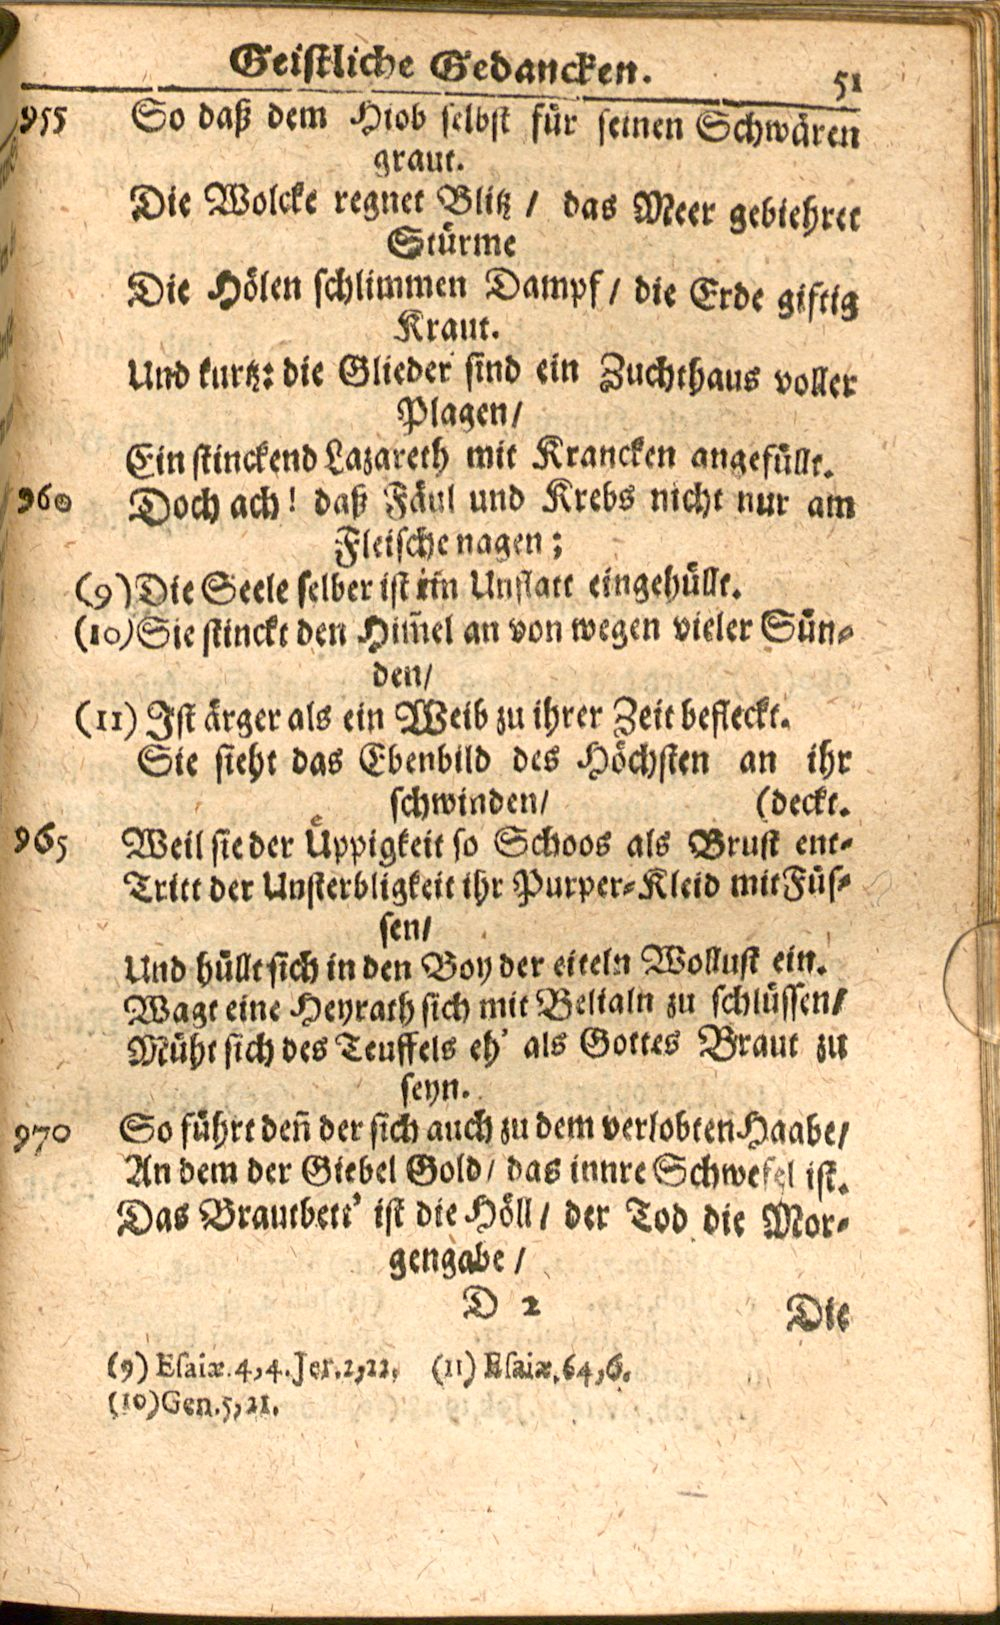 Geistliche Gedancken. 51
955 So daß dem Hiob selbst für seinen Schwären
graut.
Die Wolcke regnet Blitz / das Meer gebiehret
Stürme
Die Hölen schlimmen Dampf / die Erde giftig
Kraut.
Und kurtz: die Glieder sind ein Zuchthaus voller
Plagen/
Ein stinckend Lazareth mit Krancken angefüllt.
960 Doch ach! daß Fäul und Krebs nicht nur am
Fleische nagen;
(9) Die Seele selber ist in Unflatt eingehüllt.
(10) Sie stinckt den Him̃el an von wegen vieler Sün-
den/
(11) Ist ärger als ein Weib zu ihrer Zeit befleckt.
Sie sieht das Ebenbild des Höchsten an ihr
schwinden/ (deckt.
965 Weil sie der Üppigkeit so Schoos als Brust ent-
Tritt der Unsterbligkeit ihr Purper-Kleid mit Füs-
sen/
Und hüllt sich in den Boy der eiteln Wollust ein.
Wagt eine Heyrath sich mit Belialn zu schlüssen/
Müht sich des Teuffels eh' als Gottes Braut zu
seyn.
970 So führt deñ der sich auch zu dem verlobten Haabe/
An dem der Giebel Gold/ das innre Schwefel ist.
Das Brautbett' ist die Höll / der Tod die Mor-
gengabe /
D 2 Die
(9) Esaiæ. 4, 4. Jer. 2, 22. (11) Esaiæ. 64, 6.
(10) Gen. 5, 21.